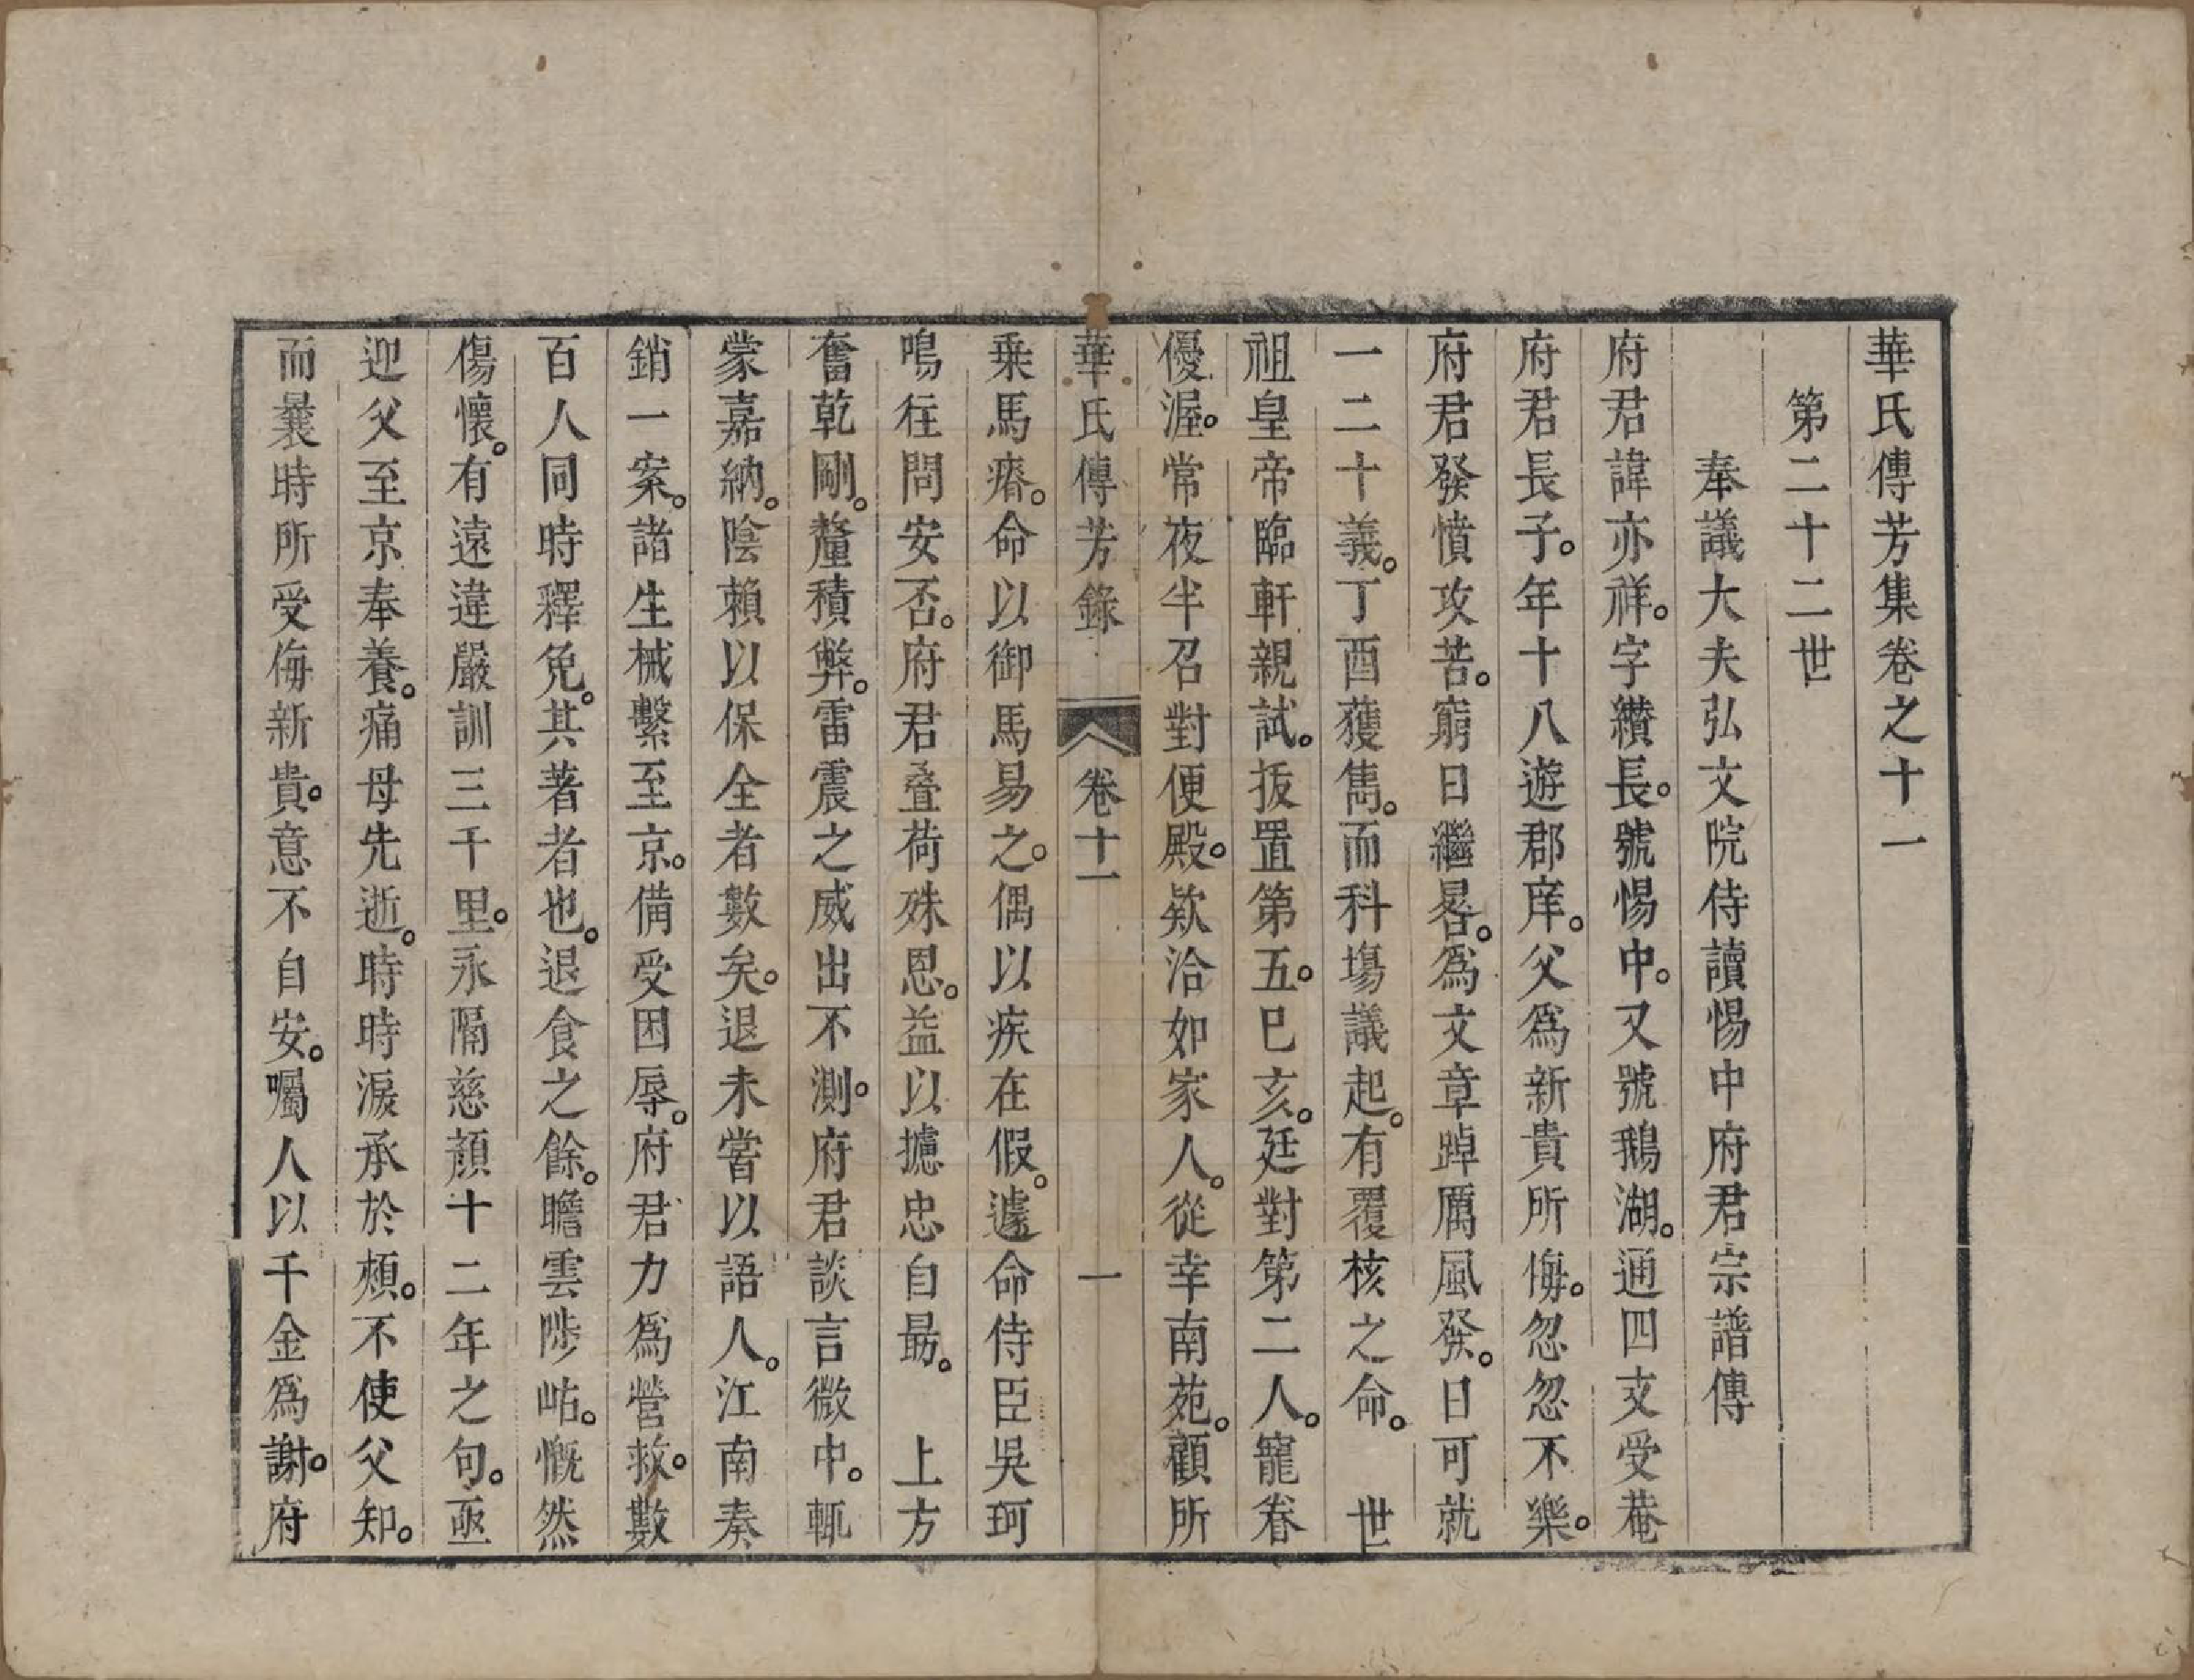 華氏傳芳集卷之十一
第二十二世
奉議大夫弘文院侍讀惕中府君宗譜傳
府君諱亦祥。字纘長。號惕中。又號鵝湖。通四支受菴
府君長子。年十八遊郡庠。父爲新貴所侮。忽忽不樂。
府君發憤攻苦。窮日繼晷。爲文章踔厲風發。日可就
一二十義。丁酉獲雋。而科塲議起。有覆核之命。 世
祖皇帝臨軒親試。拔置第五。巳亥。廷對第二人。寵眷
優渥。常夜半召對便殿。欵洽如家人。從幸南苑。顧所
華氏傳芳錄 卷十一 一
乗馬瘠。命以御馬易之。偶以疾在假。遽命侍臣吳珂
鳴徃問安否。府君疊荷殊恩。益以攄忠自勗。 上方
奮乾剛。釐積弊。雷震之威出不測。府君談言微中。輒
蒙嘉納。陰賴以保全者數矣。退未嘗以語人。江南奏
銷一案。諸生械繫至京。備受困辱。府君力爲營救。數
百人同時釋免。其著者也。退食之餘。瞻雲陟岵。慨然
傷懷。有遠違嚴訓三千里。永隔慈顔十二年之句。亟
迎父至京奉養。痛母先逝。時時淚承於頰。不使父知。
而曩時所受侮新貴。意不自安。囑人以千金爲謝。府